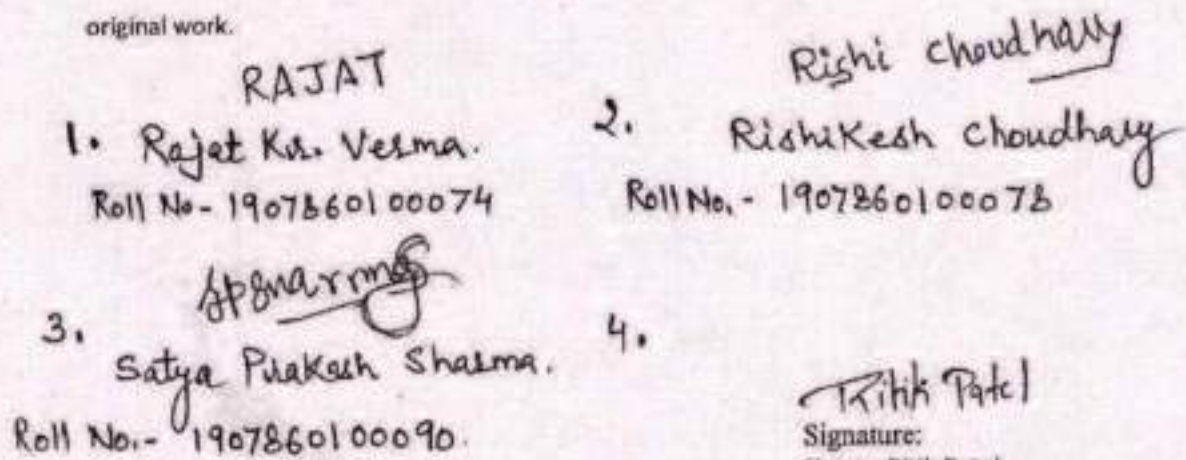 original work.
RAJAT
1. Rajat Kr. Verma.
Roll No- 1907860100074
Rishi Choudhary
2. Rishikesh Choudhary
Roll No.- 1907860100078
spsharma
3. Satya Prakash Sharma.
Roll No.- 1907860100090.
4.
Ritik Patel
Signature: